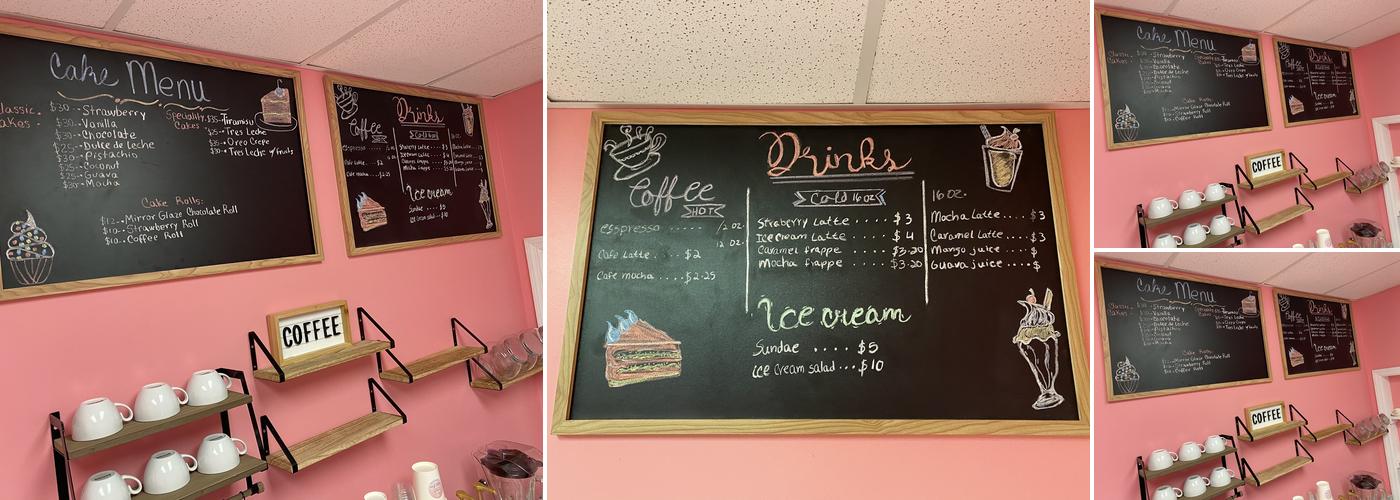 Cake Menu
Classic Cakes
$30 Strawberry
$30 Vanilla
$30 Chocolate
$25 Dulce de leche
$30 Pistachio
$25 Coconut
$25 Guava
$30 Mocha
Speciality Cakes
$35 Tiramisu
$25 Tres Leche
$35 Oreo Crepe
$30 Tres Leche w/fruits
Cake Rolls:
$12 Mirror Glaze Chocolate Roll
$10 Strawberry Roll
$10 Coffee Roll
COFFEE
Drinks
Coffee
HOT
espresso ..... /2 oz.
12 oz.
Cafe Latte .... $2
Cafe mocha .... $2.25
Cold 16oz
Straberry Latte .... $3
Ice Cream Latte .... $4
Caramel frappe $3.20
Mocha frappe $3.20
16 oz.
Mocha Latte.... $3
Caramel Latte.... $3
Mango juice .... $
Guava juice .... $
Ice cream
Sundae .... $5
ice Cream salad ... $10
Cake Menu
Drinks
Ice cream
COFFEE
Cake Menu
Drinks
Ice cream
COFFEE